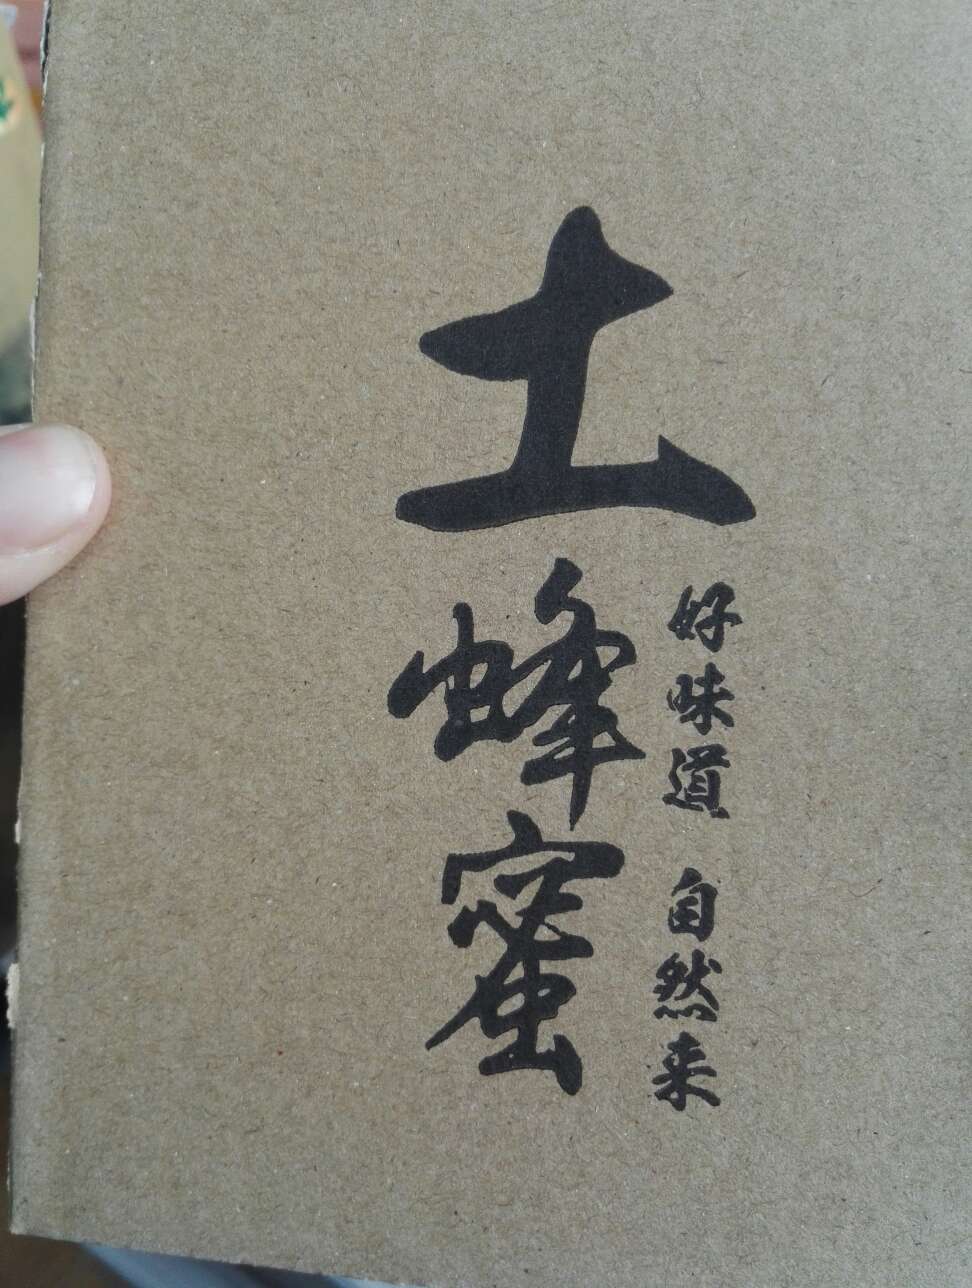 土蜂蜜
好味道 自然来